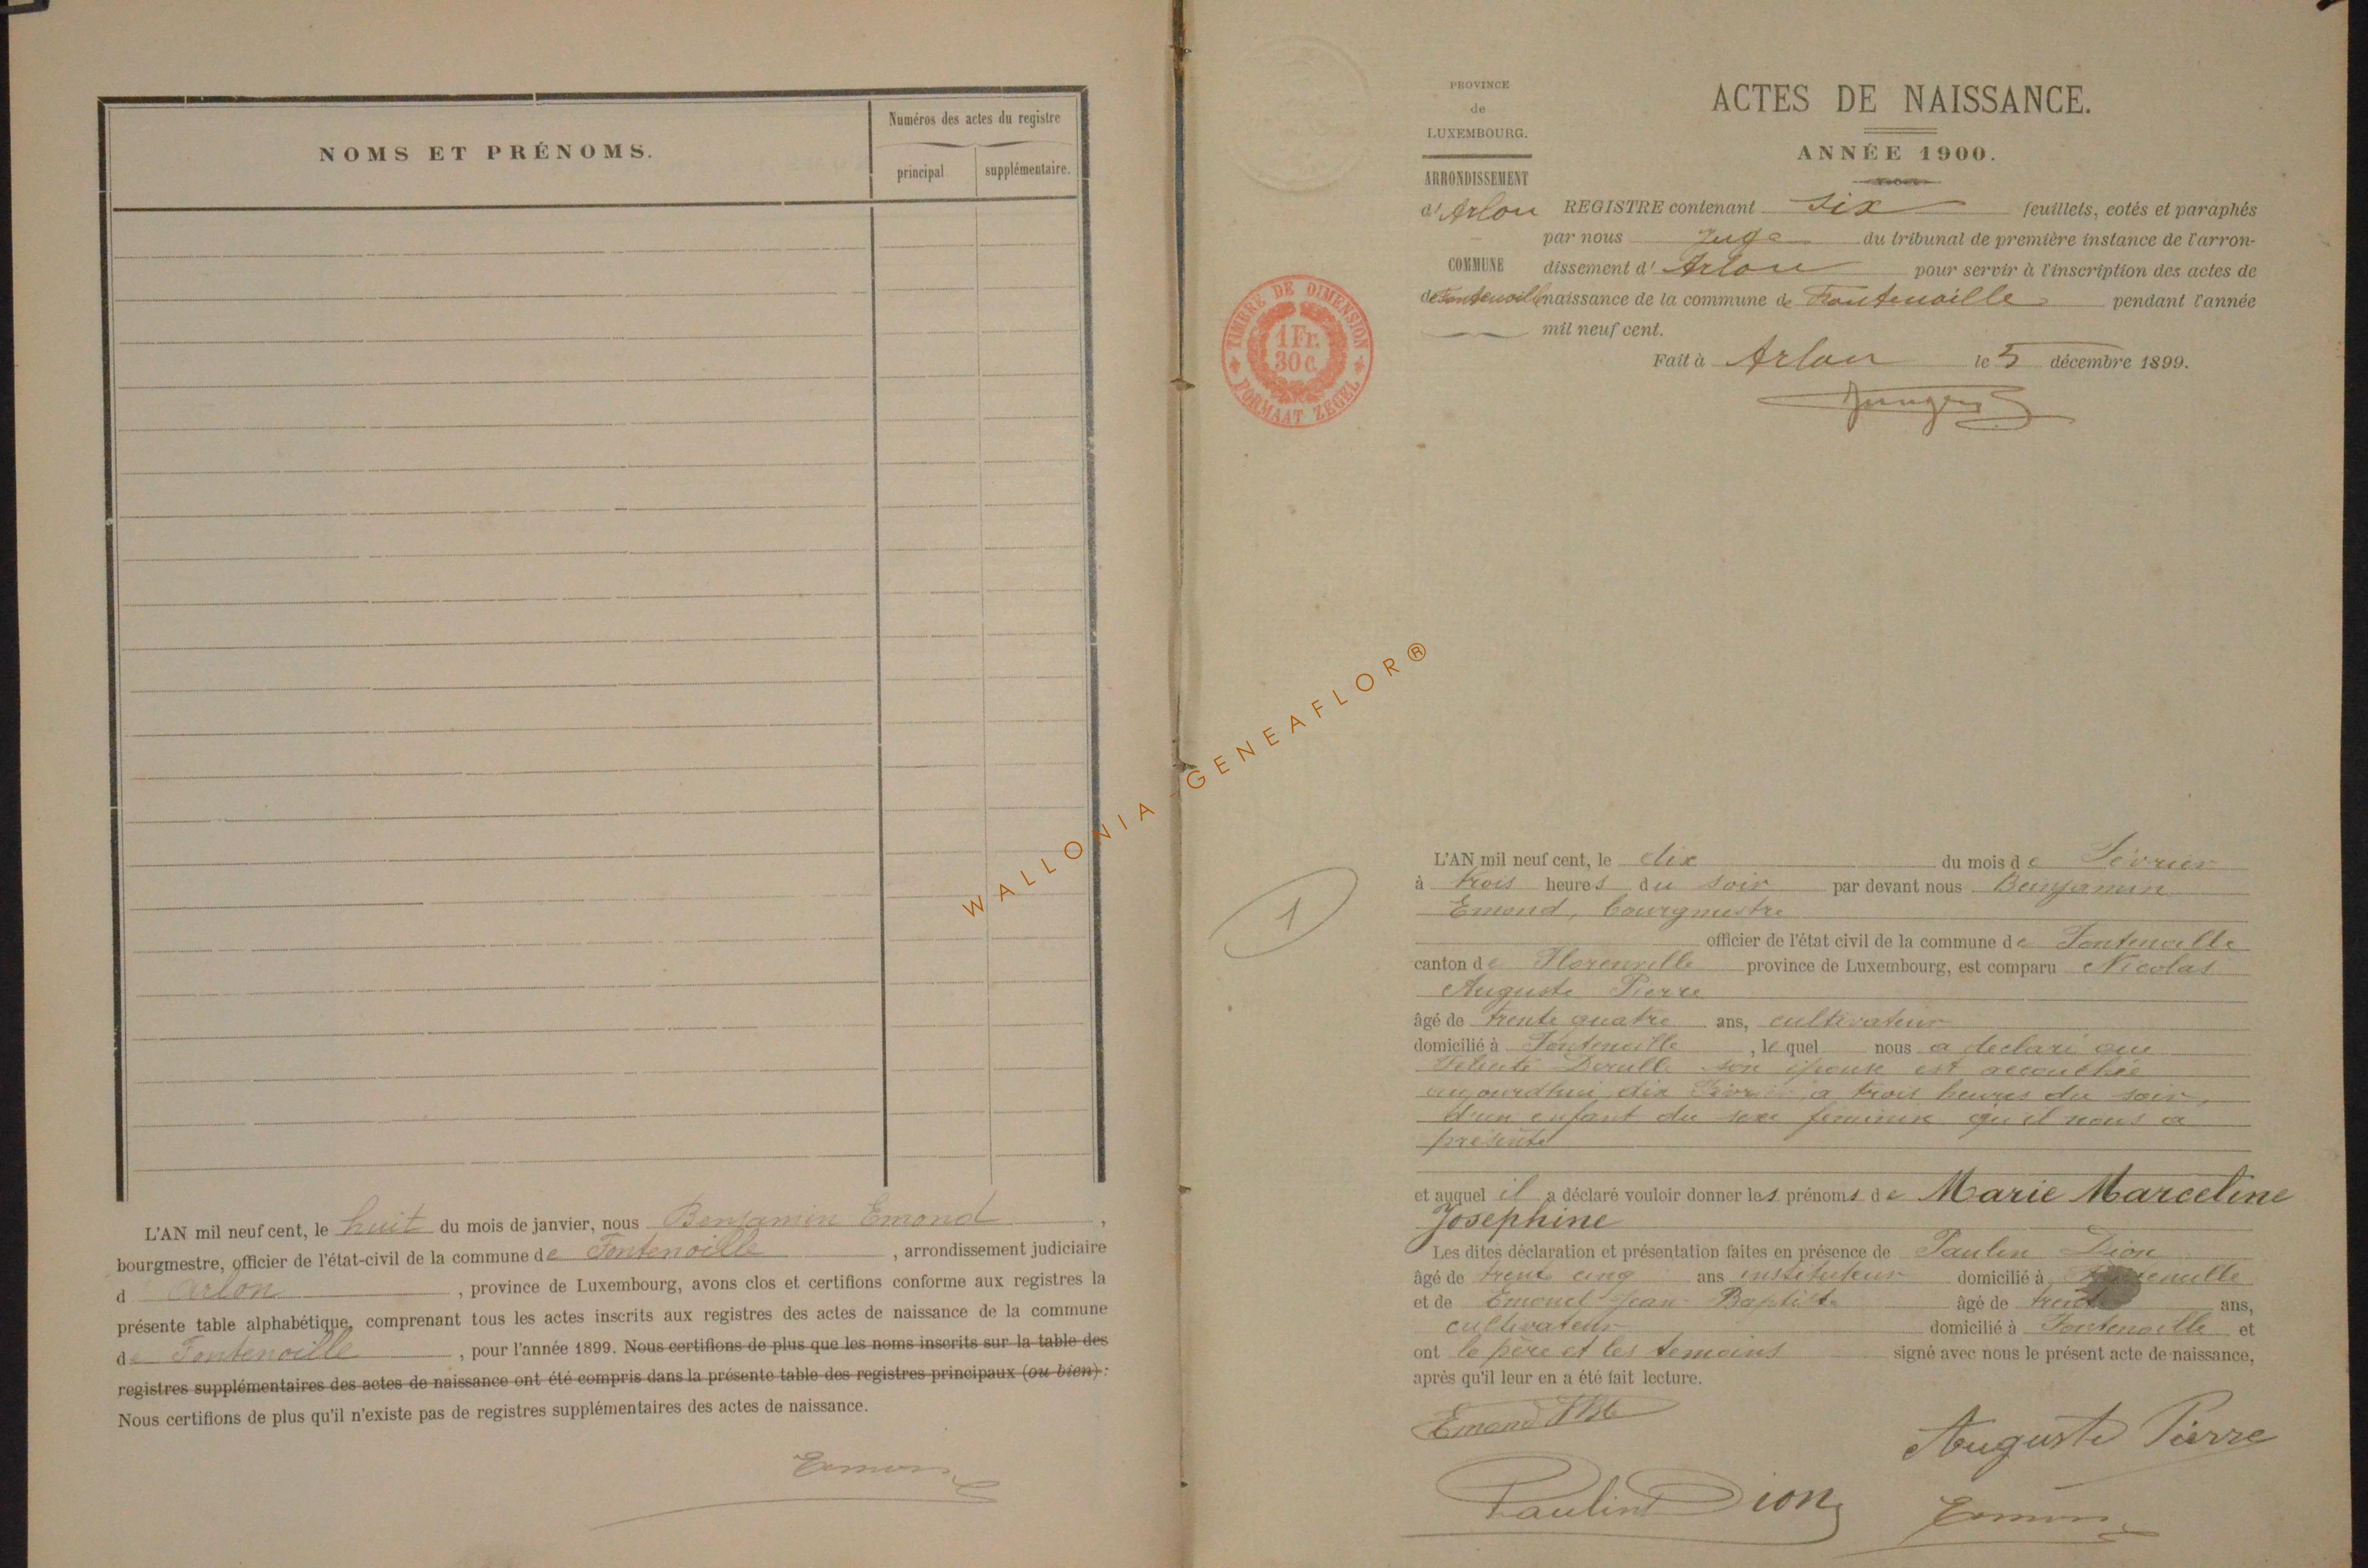 NOMS ET PRÉNOMS.
Numéros des actes du registre
principal
supplémentaire.
L'AN mil neuf cent, le huit du mois de janvier, nous Benjamin Emond,
bourgmestre, officier de l'état-civil de la commune de Fontenoille, arrondissement judiciaire
d Arlon, province de Luxembourg, avons clos et certifions conforme aux registres la
présente table alphabétique, comprenant tous les actes inscrits aux registres des actes de naissance de la commune
de Fontenoille, pour l'année 1899. Nous certifions de plus que les noms inscrits sur la table des
registres supplémentaires des actes de naissance ont été compris dans la présente table des registres principaux (ou bien):
Nous certifions de plus qu'il n'existe pas de registres supplémentaires des actes de naissance.
Emond
WALLONIA - GENEAFLOR®
TIMBRE DE DIMENSION
1 Fr.
30 c.
FORMAAT ZEGEL
PROVINCE
de
LUXEMBOURG.
ARRONDISSEMENT
d'Arlon
COMMUNE
de Fontenoille
ACTES DE NAISSANCE.
ANNÉE 1900.
REGISTRE contenant six feuillets, cotés et paraphés
par nous Juge du tribunal de première instance de l'arron-
dissement d'Arlon pour servir à l'inscription des actes de
naissance de la commune de Fontenoille pendant l'année
mil neuf cent.
Fait à Arlon le 5 décembre 1899.
1
L'AN mil neuf cent, le dix du mois de Février
à trois heures du soir par devant nous Benjamin
Emond, bourgmestre
officier de l'état civil de la commune de Fontenoille
canton de Florenville province de Luxembourg, est comparu Nicolas
Auguste Pierre
âgé de trente quatre ans, cultivateur
domicilié à Fontenoille, lequel nous a declaré que
Felicité son épouse est accouchée
aujourdhui dix Février a trois heures du soir,
d'un enfant du sexe feminin qu'il nous a
présenté
et auquel il a déclaré vouloir donner les prénoms de Marie Marceline
Josephine
Les dites déclaration et présentation faites en présence de Paulin Dion
âgé de trente cinq ans instituteur domicilié à Fontenoille
et de Emond Jean Baptiste âgé de trente ans,
cultivateur domicilié à Fontenoille et
ont le père et les temoins signé avec nous le présent acte de naissance,
après qu'il leur en a été fait lecture.
Emond JBte
Auguste Pierre
Paulin Dion
Emond